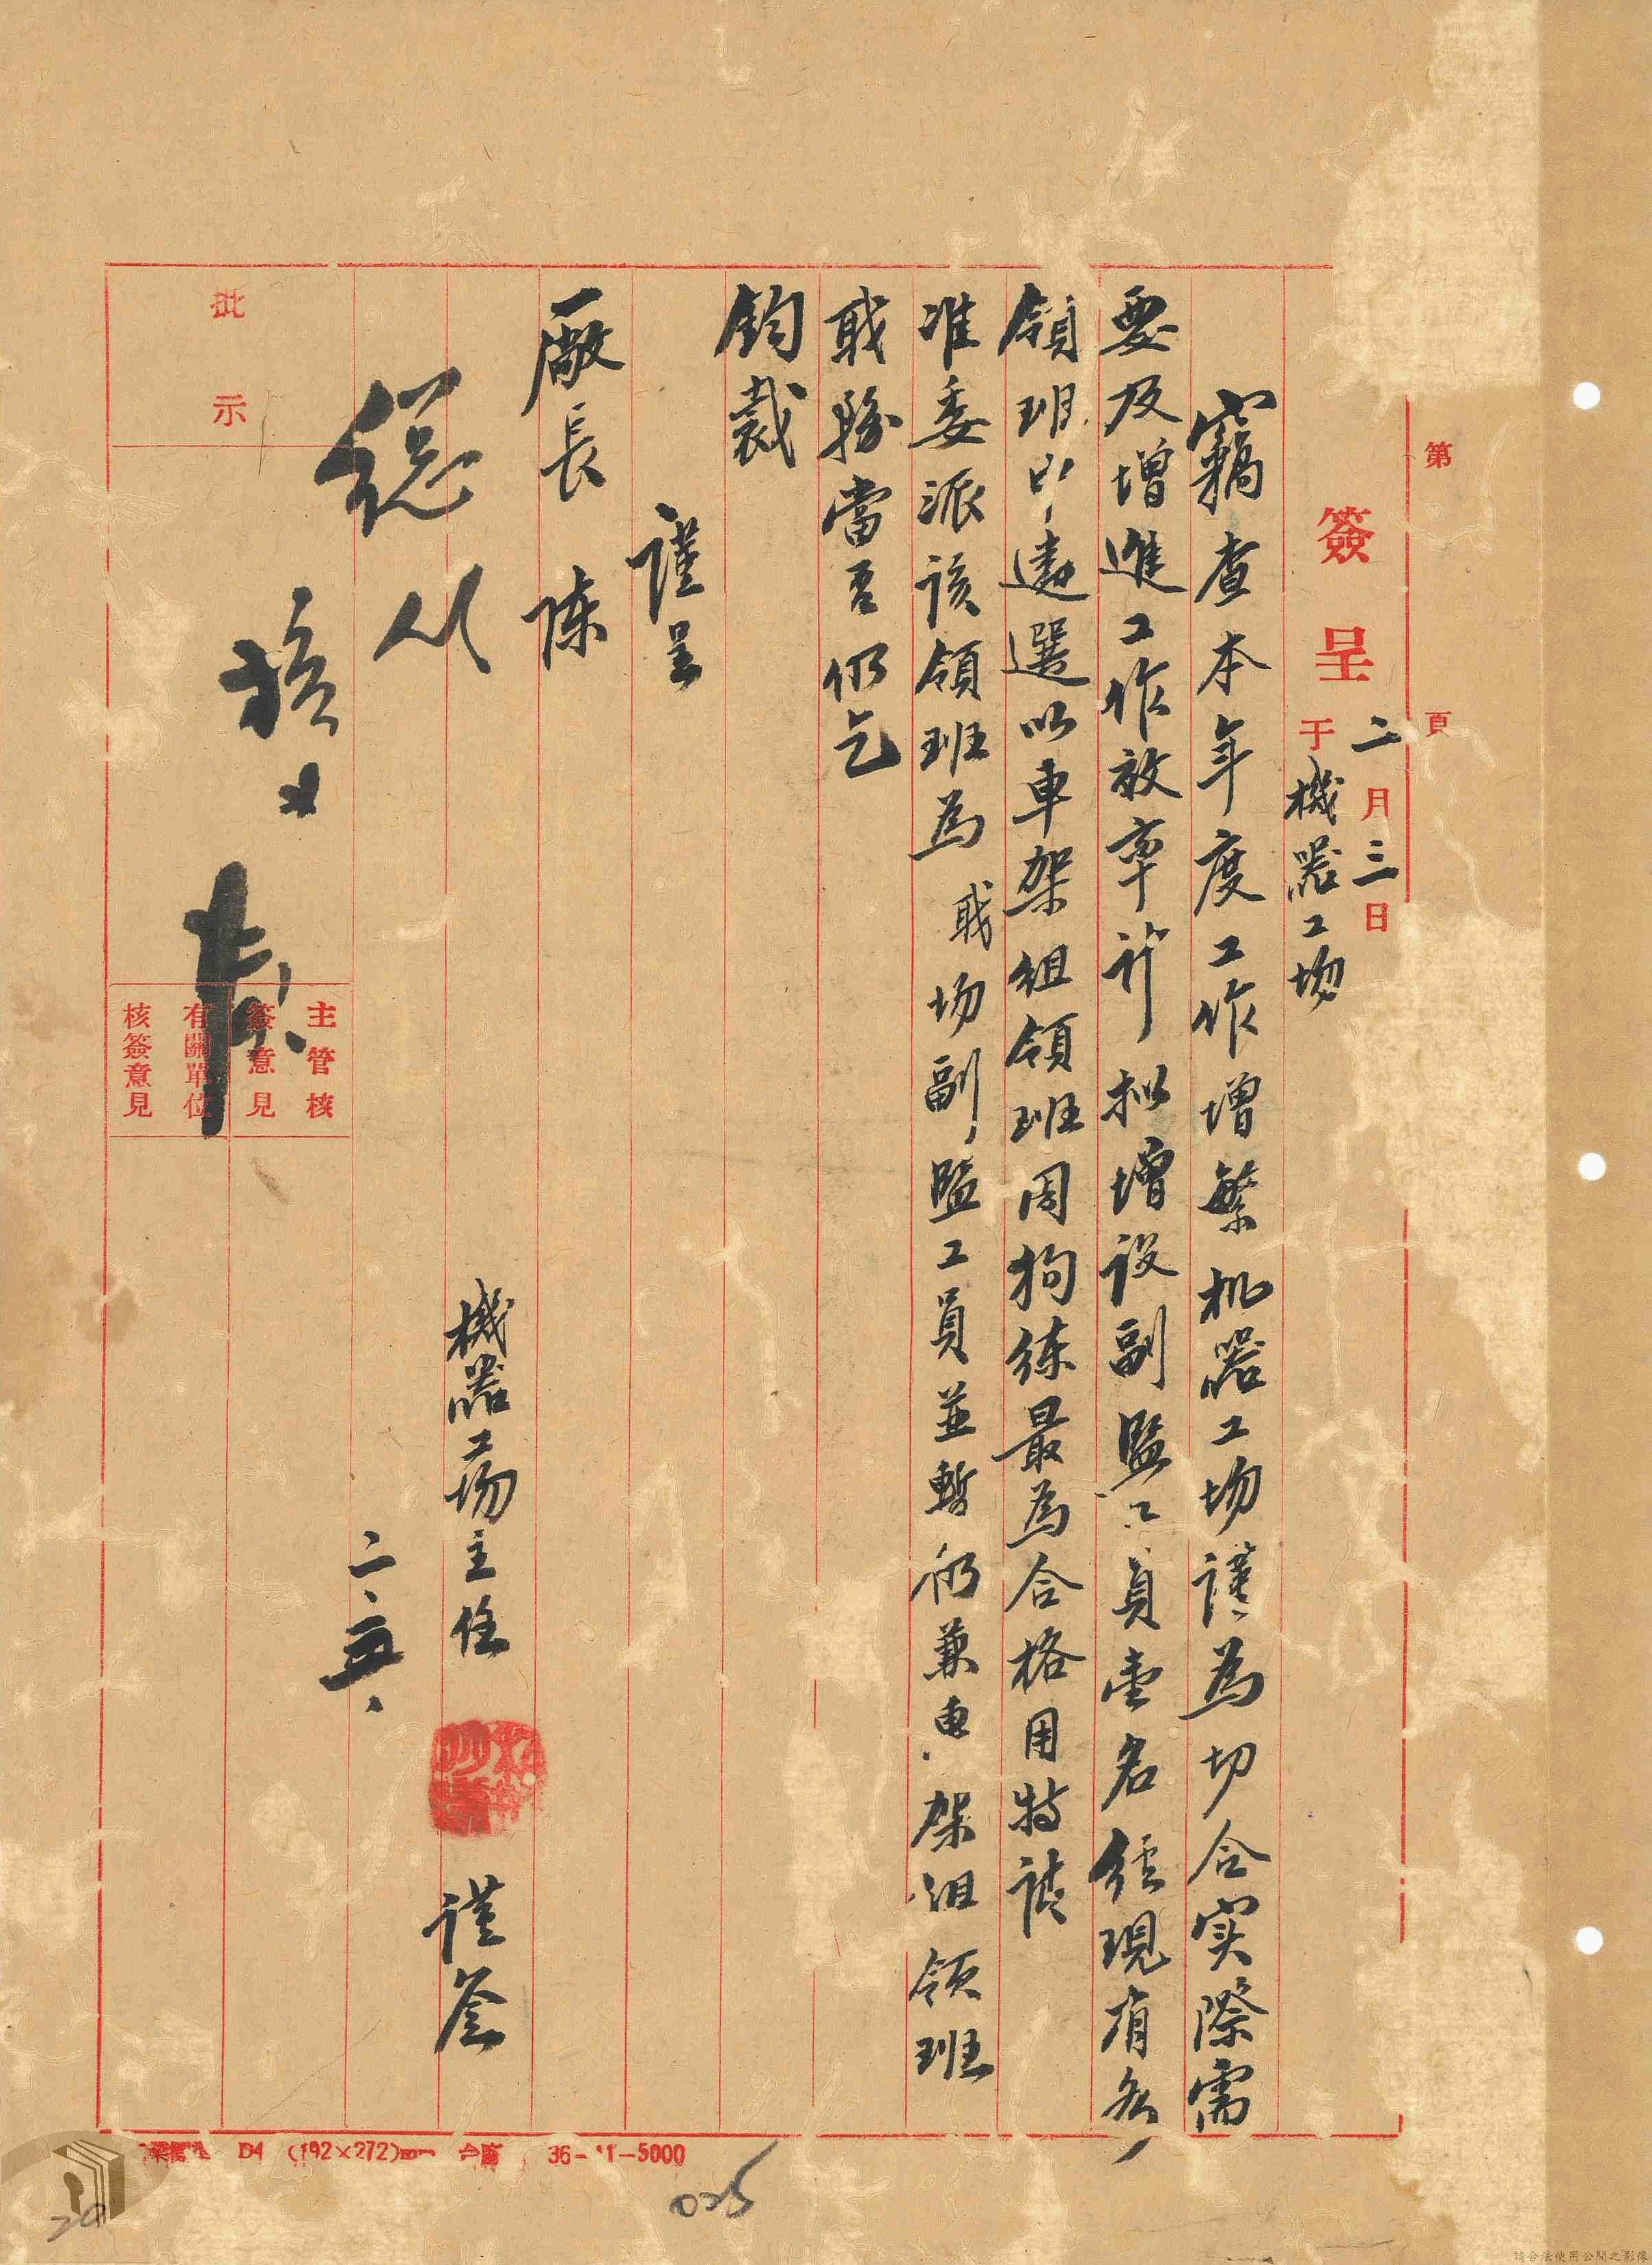 第 頁
簽呈 二月三日
于機器工場
竊查本年度工作增繁机器工場謹為切合实際需
要及增進工作效率計拟增設副監工員壹名經現有各
領班中遴選以車架組領班周狗練最為合格用特請
准委派該領班為 职場副監工員並暫仍兼車架組領班
职務當否仍乞
鈞裁
謹呈
廠長 陈
機器工場主任 謹簽
二、五、
批示
主管核簽意見
有關單位核簽意見
D4 (192×272)mm 36-11-5000
025
20
請合法使用公開之影像